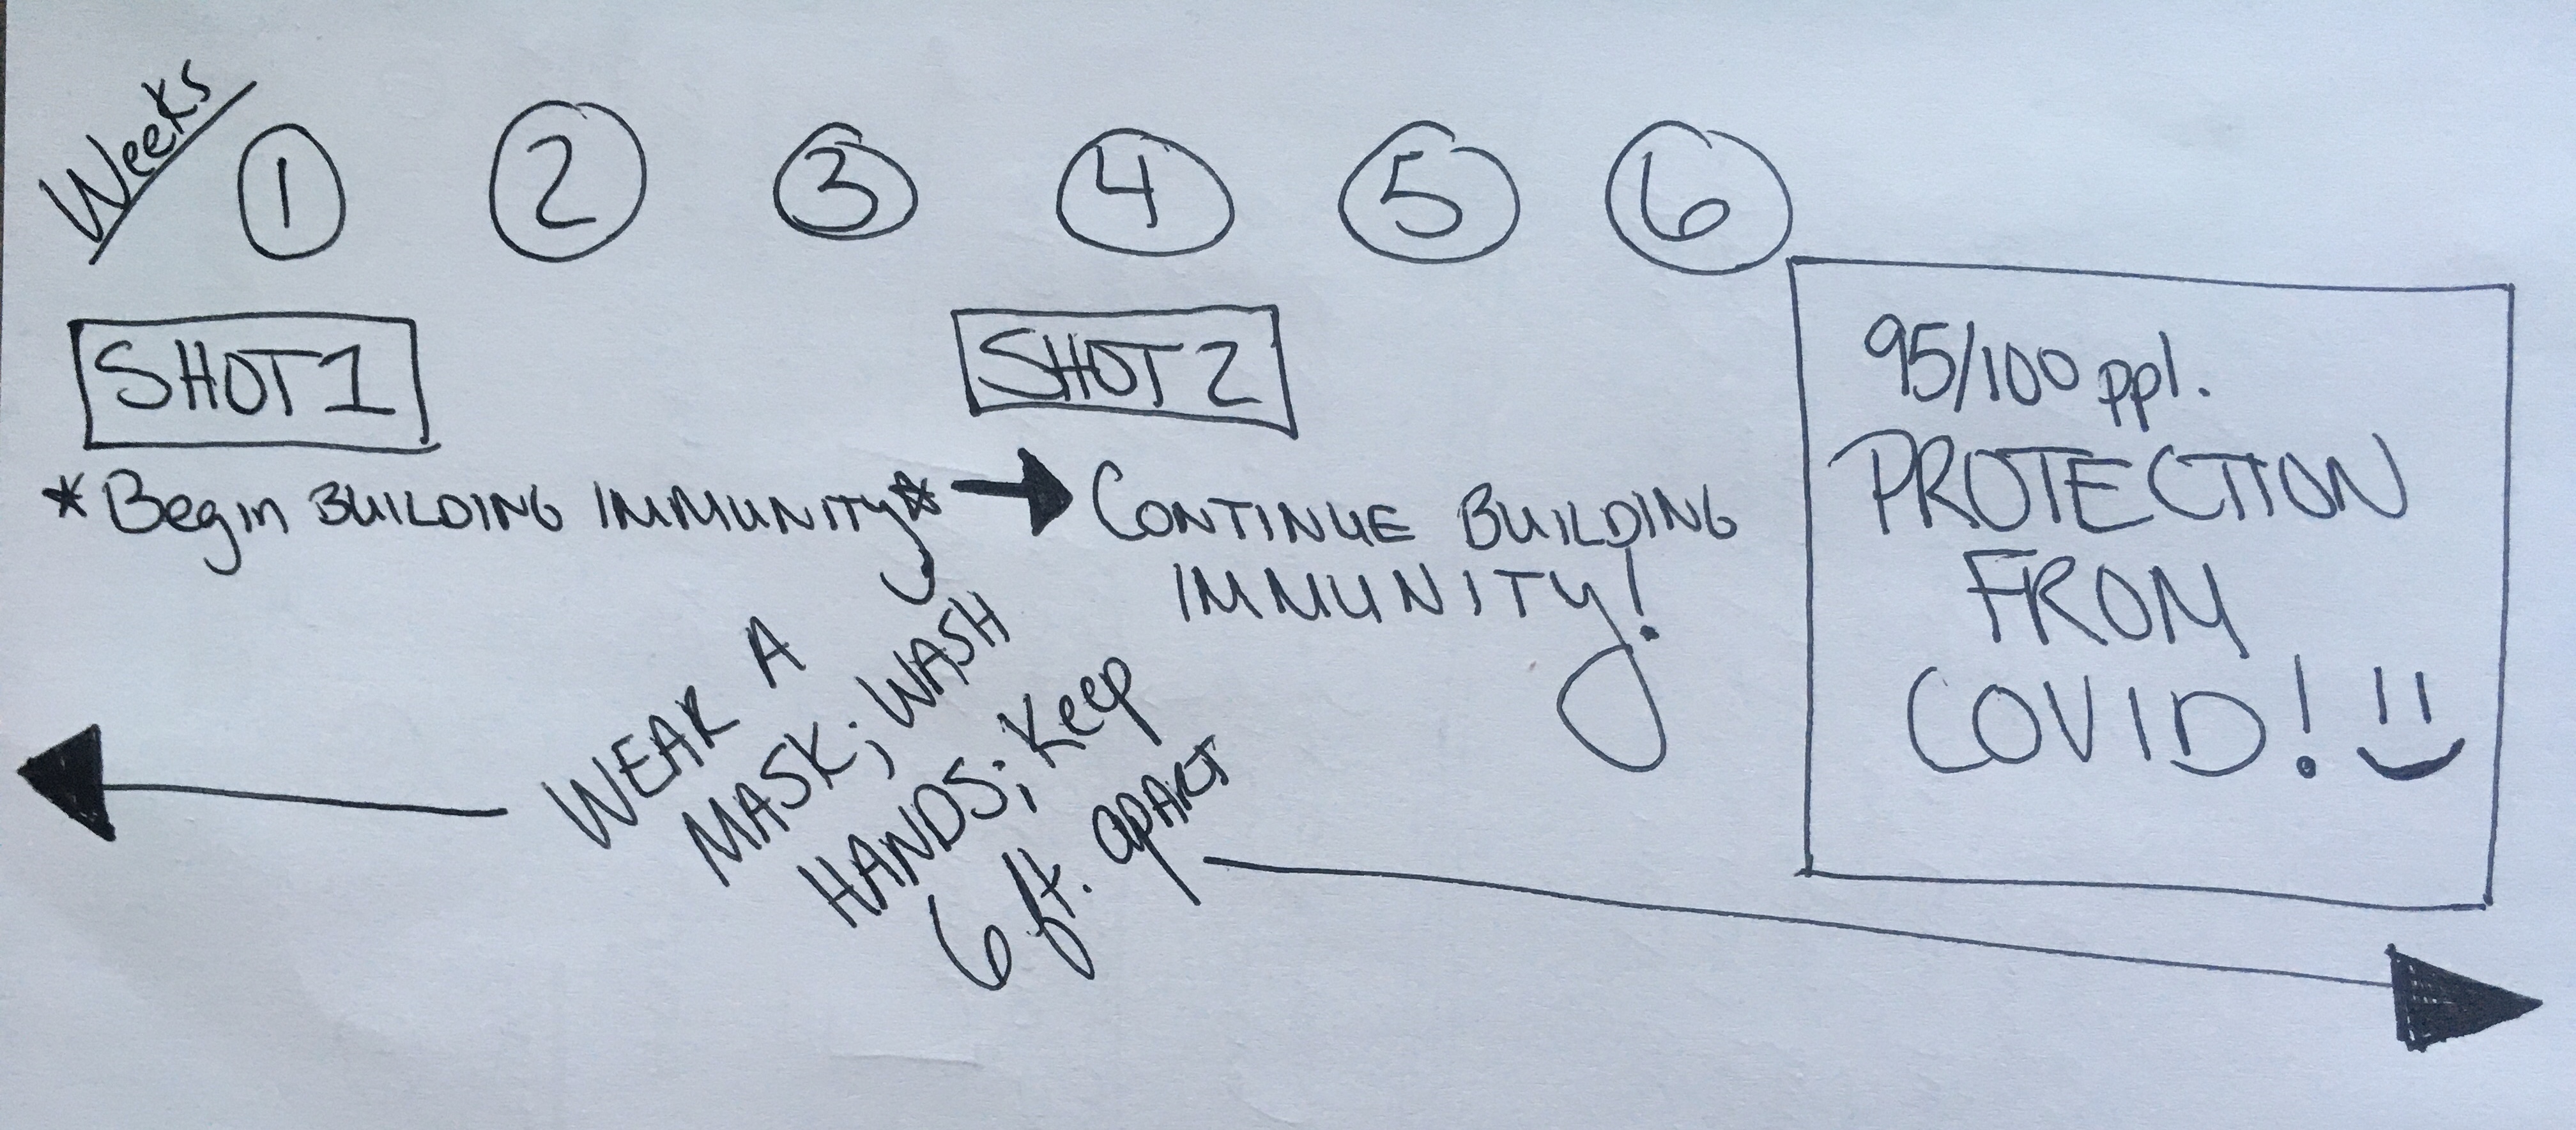 Weeks
1 2 3 4 5 6
SHOT 1
SHOT 2
*Begin BUILDING IMMUNITY*
CONTINUE BUILDING
IMMUNITY!
WEAR A
MASK; WASH
HANDS; Keep
6 ft. apART
95/100 ppl.
PROTECTION
FROM
COVID!